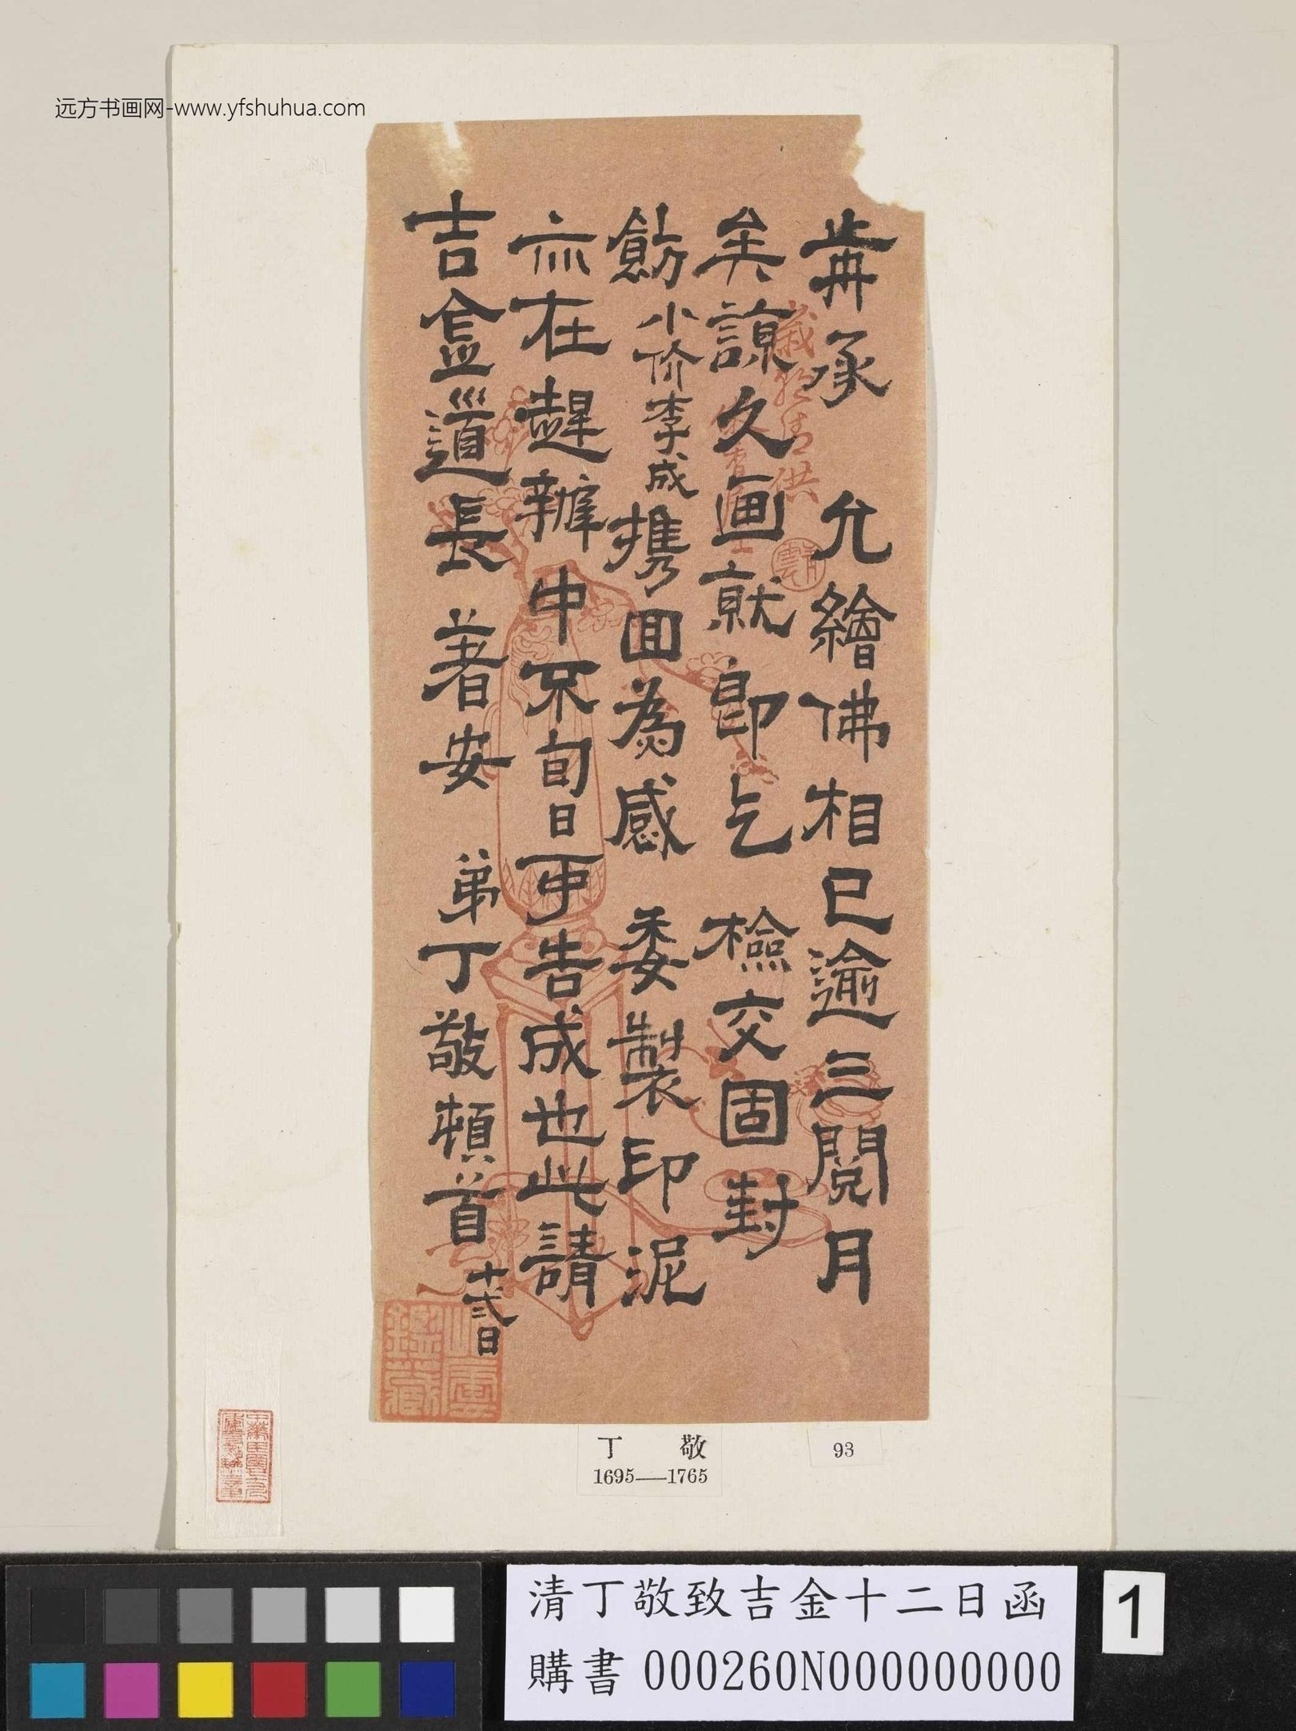 远方书画网-www.yfshuhua.com
歬承 允繪佛相已逾三閱月
矣諒久画就即乞 檢交固封
飭小价李成携回為感 委製印泥
亦在趕辦中不旬日可告成也此請
吉盦道長 著安 弟丁敬頓首 十弍日
歲朝清供
鑑藏
丁 敬
1695—1765
93
清丁敬致吉金十二日函
購書 000260N000000000
1